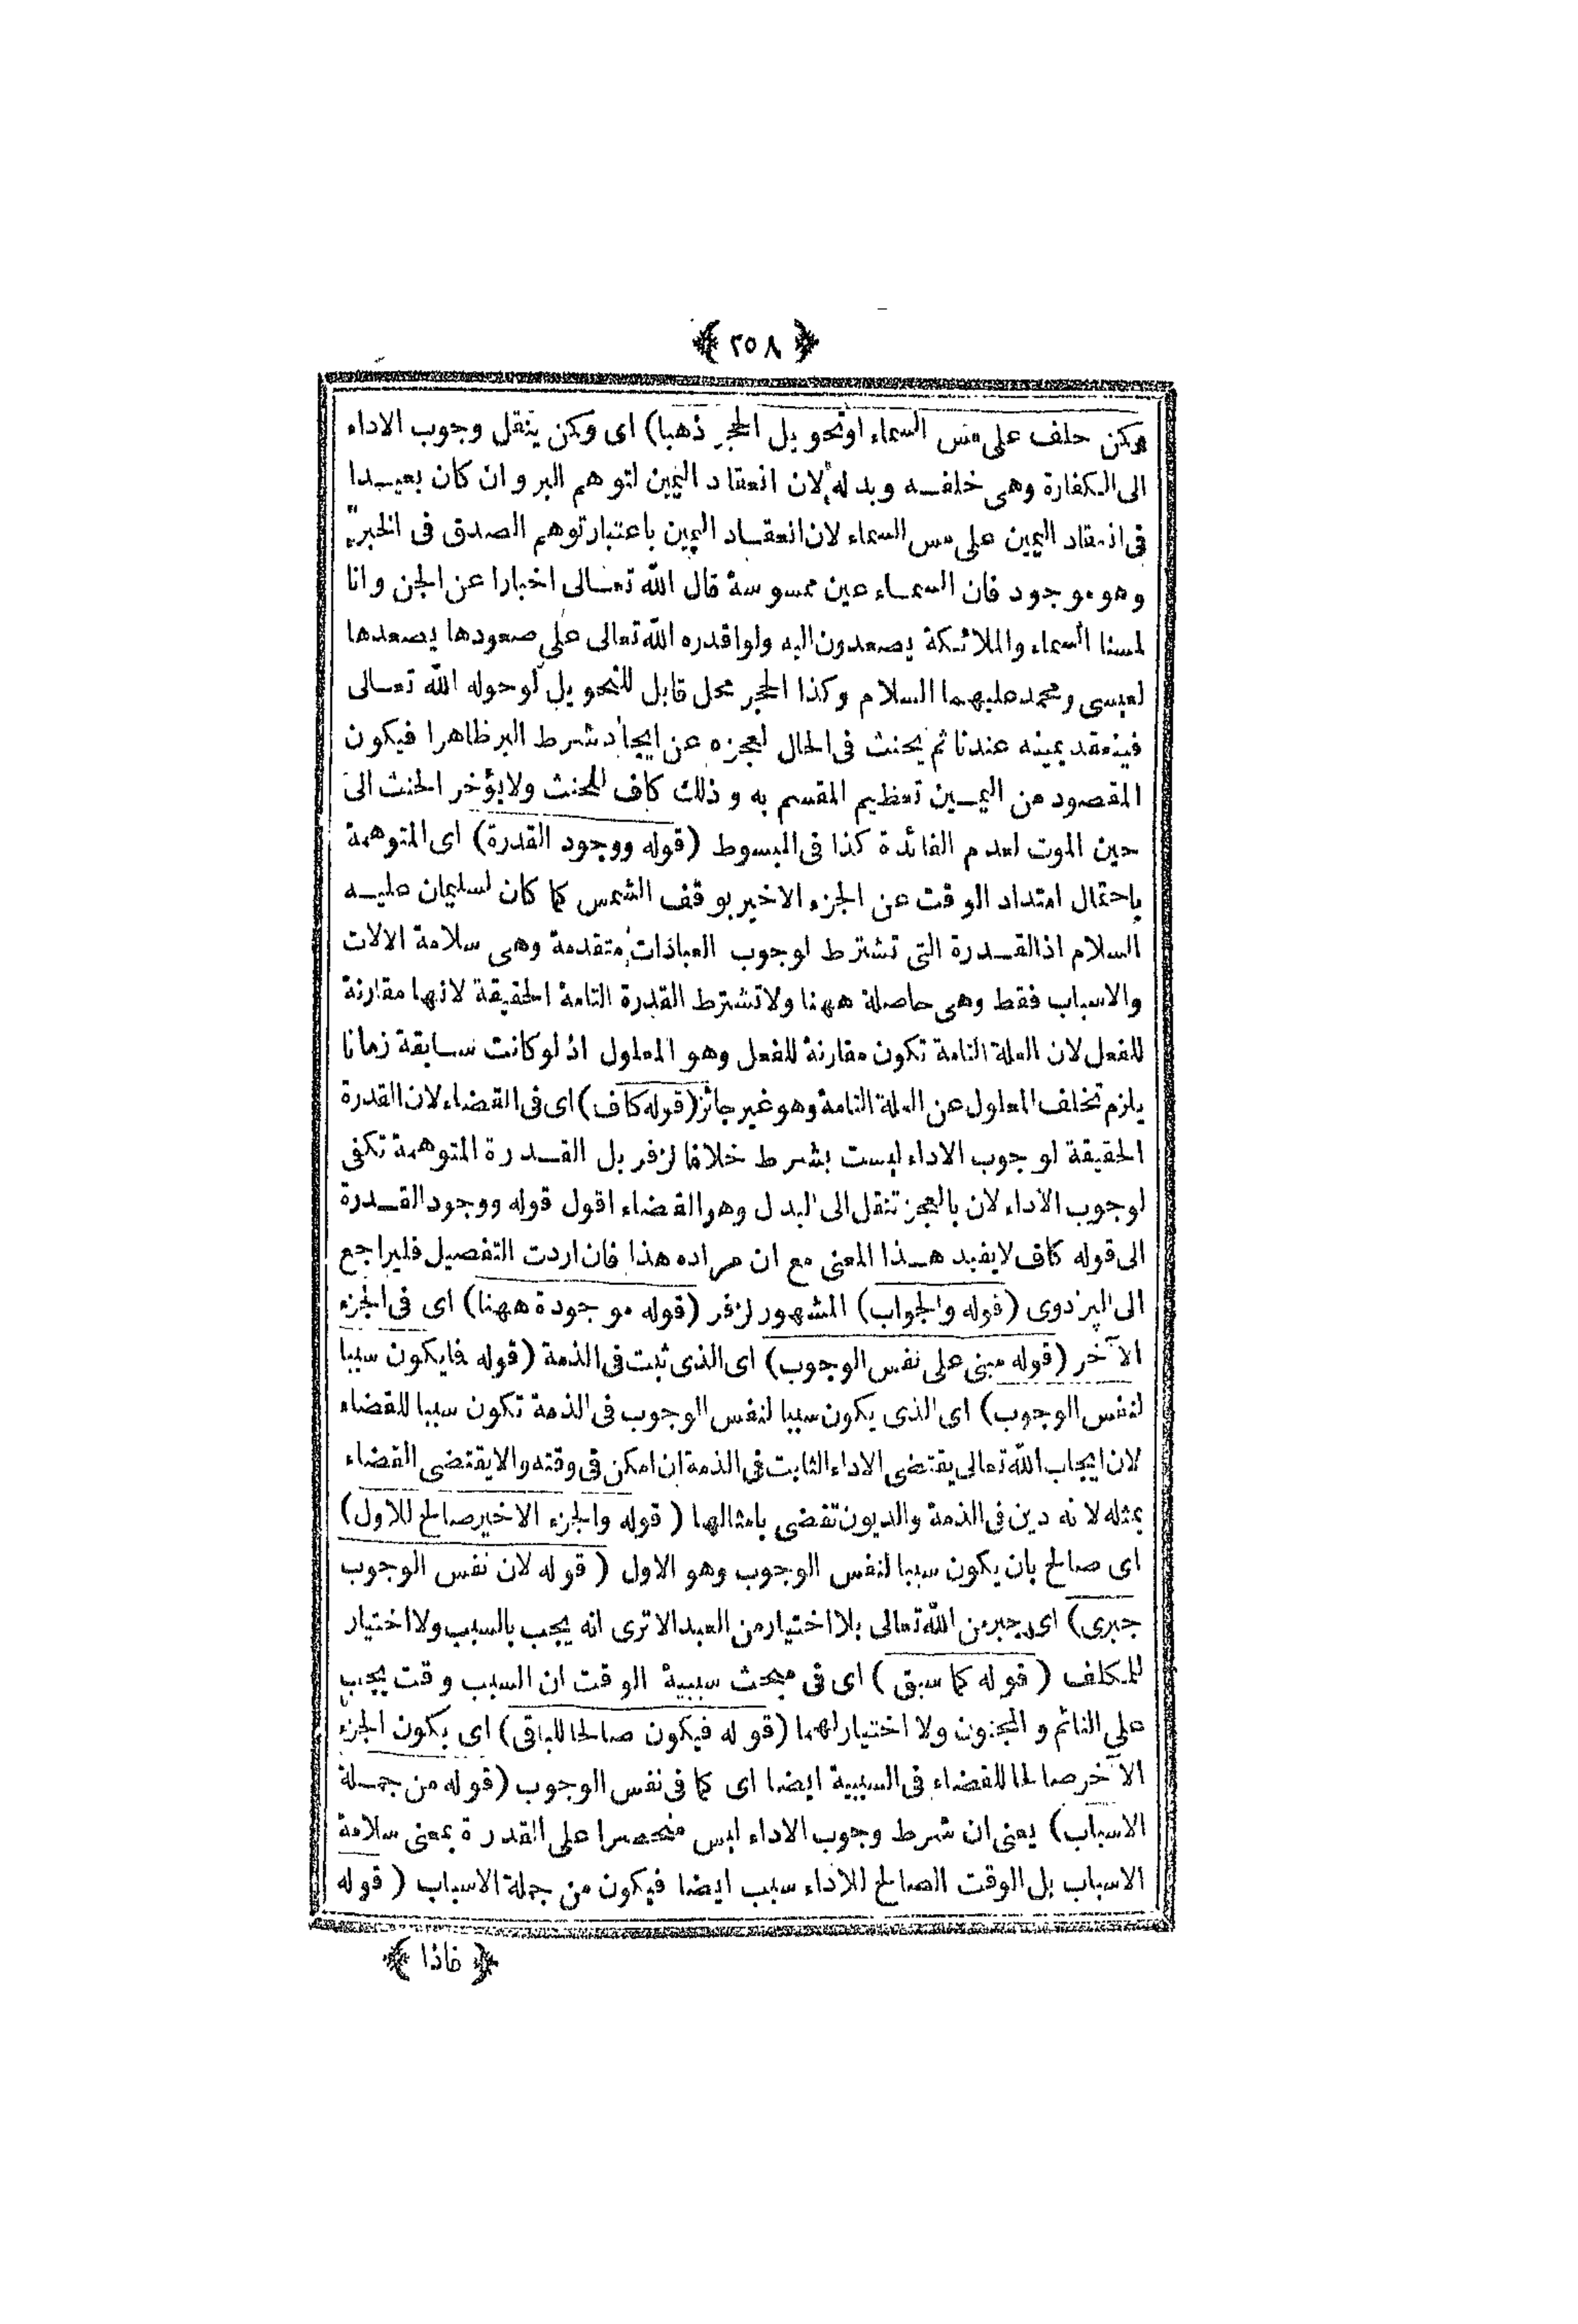 ﴿ ٢٥٨ ﴾
وكن حلف على مس السماء او تحويل الحجر ذهبا) اى وكن ينقل وجوب الاداء
الى الكفارة وهى خلفه وبدله لان انعقاد اليمين لتوهم البر وان كان بعيدا
فى انعقاد اليمين على مس السماء لان انعقاد اليمين باعتبار توهم الصدق فى الخبر
وهو موجود فان السماء عين ممسوسة قال الله تعالى اخبارا عن الجن وانا
لمسنا السماء والملائكة يصعدون اليه ولو اقدره الله تعالى على صعودها يصعدها
لعيسى ومحمد عليهما السلام وكذا الحجر محل قابل للتحويل لو حوله الله تعالى
فينعقد يمينه عندنا ثم يحنث فى الحال لعجزه عن ايجاد شرط البر ظاهرا فيكون
المقصود من اليمين تعظيم المقسم به وذلك كاف للحنث ولا يؤخر الحنث الى
حين الموت لعدم الفائدة كذا فى المبسوط (قوله ووجود القدرة) اى المتوهمة
باحتمال امتداد الوقت عن الجزء الاخير بوقف الشمس كما كان لسليمان عليه
السلام اذ القدرة التى تشترط لوجوب العبادات متقدمة وهى سلامة الالات
والاسباب فقط وهى حاصلة ههنا ولا تشترط القدرة التامة الحقيقة لانها مقارنة
للفعل لان العلة التامة تكون مقارنة للفعل وهو المعلول اذ لو كانت سابقة زمانا
يلزم تخلف المعلول عن العلة التامة وهو غير جائز (قوله كاف) اى فى القضاء لان القدرة
الحقيقة لوجوب الاداء ليست بشرط خلافا لزفر بل القدرة المتوهمة تكفى
لوجوب الاداء لان بالعجز تنقل الى البدل وهو القضاء اقول قوله ووجود القدرة
الى قوله كاف لا يفيد هذا المعنى مع ان مراده هذا فان اردت التفصيل فليراجع
الى البزدوى (قوله والجواب) المشهور لزفر (قوله موجودة ههنا) اى فى الجزء
الآخر (قوله مبنى على نفس الوجوب) اى الذى ثبت فى الذمة (قوله فايكون سببا
لنفس الوجوب) اى الذى يكون سببا لنفس الوجوب فى الذمة تكون سببا للقضاء
لان ايجاب الله تعالى يقتضى الاداء الثابت فى الذمة ان امكن فى وقته والا يقتضى القضاء
بمثله لانه دين فى الذمة والديون تقضى بامثالها (قوله والجزء الاخير صالح للاول)
اى صالح بان يكون سببا لنفس الوجوب وهو الاول (قوله لان نفس الوجوب
جبرى) اى جبر من الله تعالى بلا اختيار من العبد الا ترى انه يجب بالسبب ولا اختيار
للمكلف (قوله كما سبق) اى فى مبحث سببية الوقت ان السبب وقت يجب
على النائم والمجنون ولا اختيار لهما (قوله فيكون صالحا للباقى) اى يكون الجزء
الآخر صالحا للقضاء فى السببية ايضا اى كما فى نفس الوجوب (قوله من جملة
الاسباب) يعنى ان شرط وجوب الاداء ليس منحصرا على القدرة بمعنى سلامة
الاسباب بل الوقت الصالح للاداء سبب ايضا فيكون من جملة الاسباب (قوله
﴿ فاذا ﴾